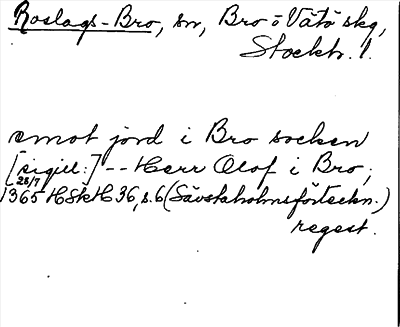 Roslags-Bro, sn, Bro o Vätö skg,
Stockh. l.
emot jord i Bro socken
[sigill:] -- Herr Olof i Bro,
28/7
1365 HSkH 36, s. 6 (Sävstaholmsförteckn.)
regest.